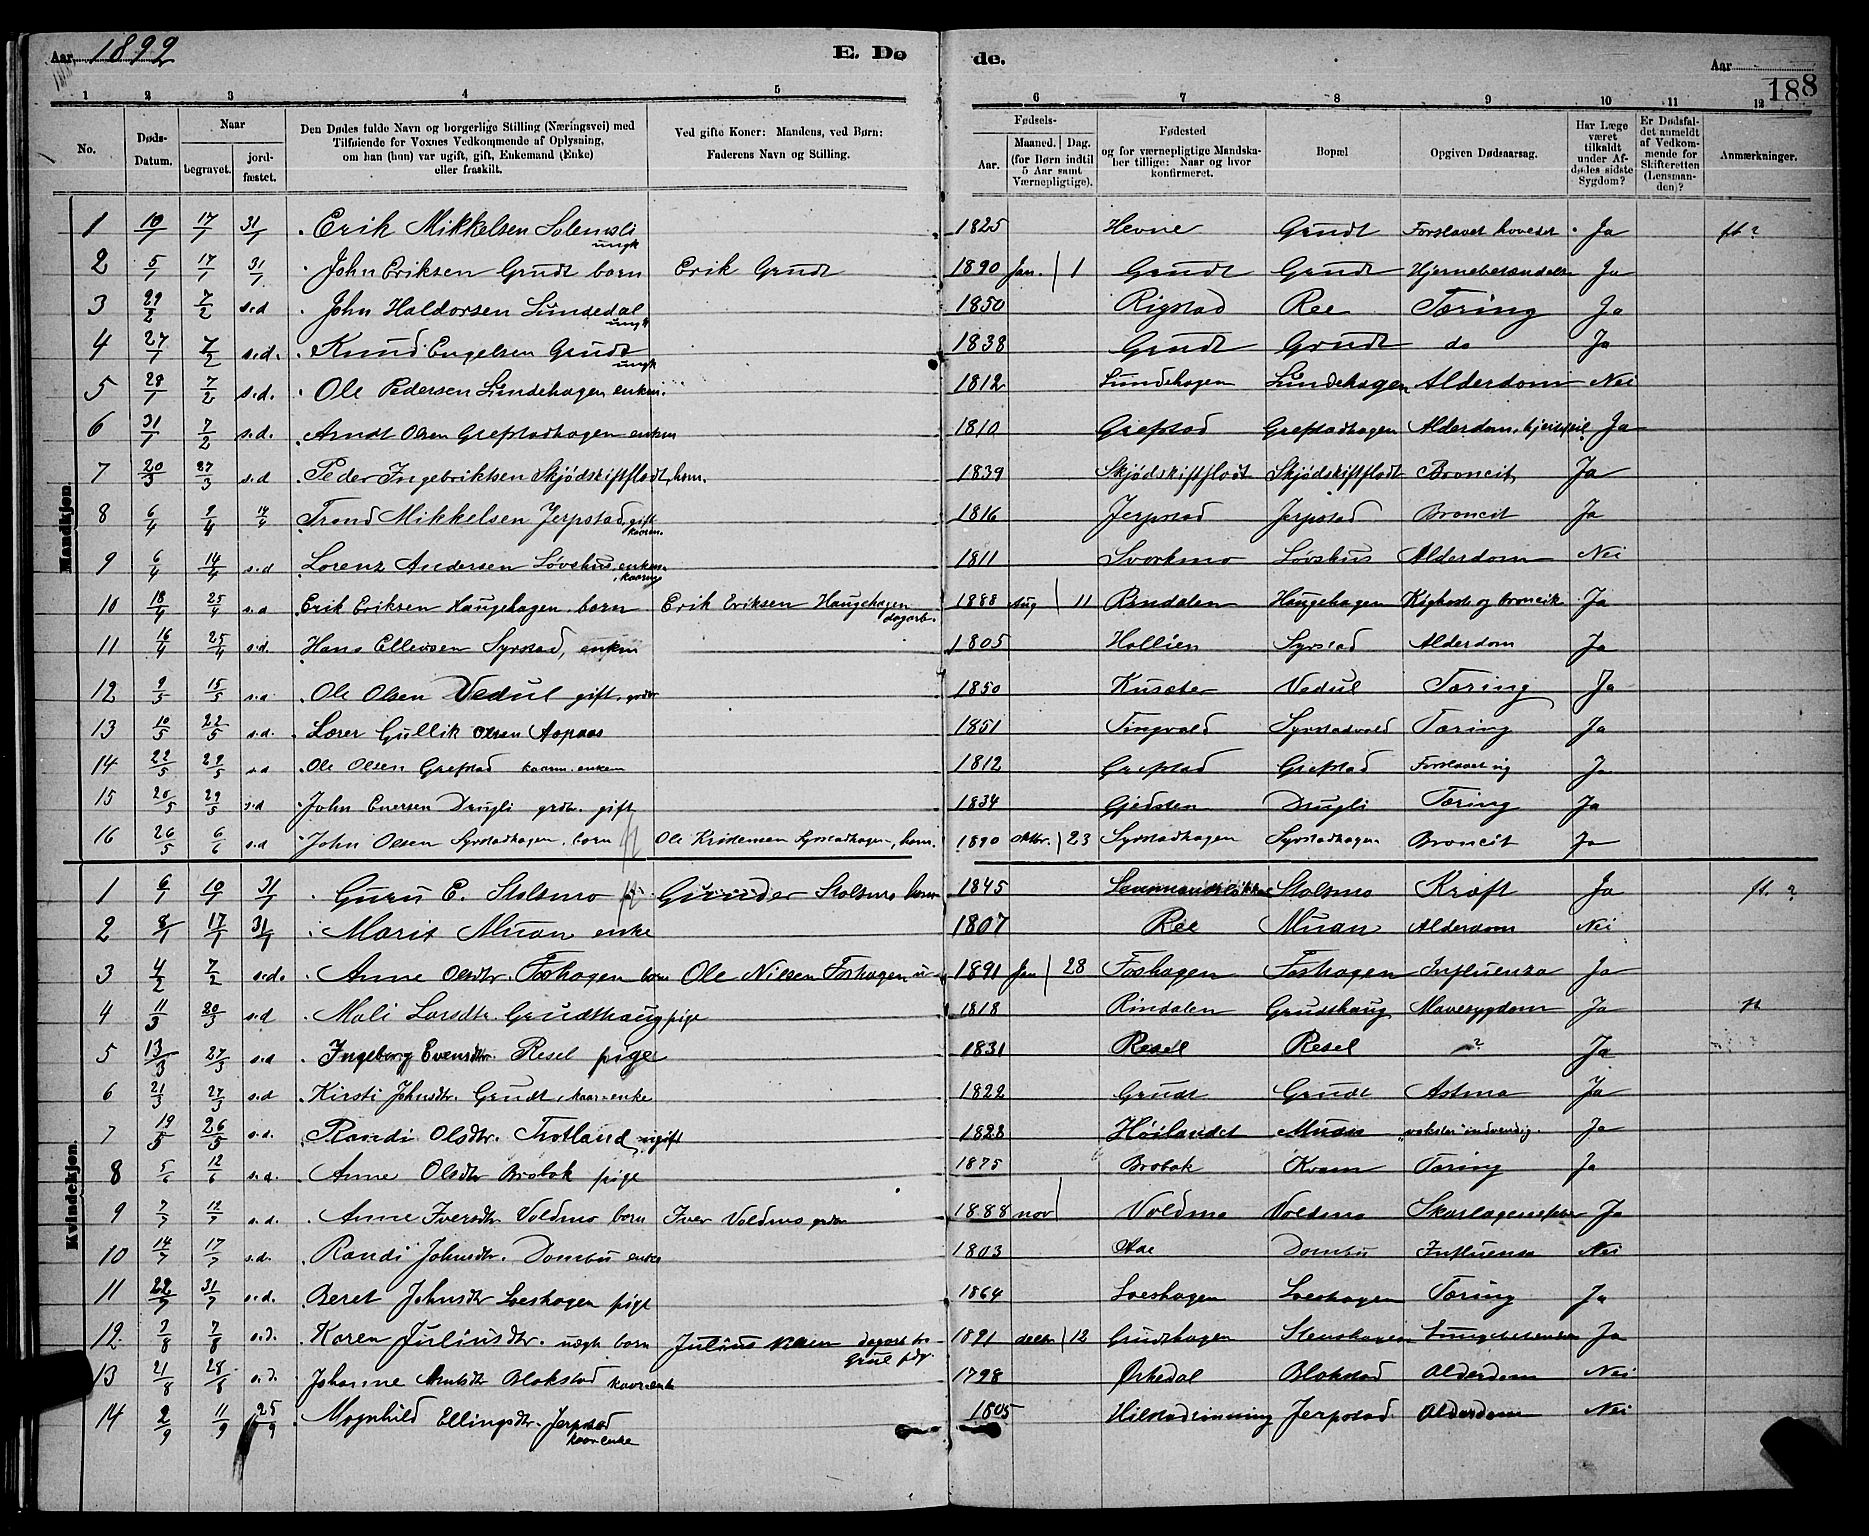 Aar 1892 E. Dø de. Aar
188
1 2 3 4 5 6 7 8 9 10 11 12
No. Døds-Datum. Naar begravet. jordfæstet. Den Dødes fulde Navn og borgerlige Stilling (Næringsvei) med Tilføiende for Voxnes Vedkommende af Oplysning, om han (hun) var ugift, gift, Enkemand (Enke) eller fraskilt. Ved gifte Koner: Mandens, ved Børn: Faderens Navn og Stilling. Fødsels- Aar. Maaned. Dag. (for Børn indtil 5 Aar samt Værnepligtige). Fødested og for værnepligtige Mandskaber tillige: Naar og hvor konfirmeret. Bopæl. Opgiven Dødsaarsag. Har Læge været tilkaldt under Afdødes sidste Sygdom? Er Dødsfaldet anmeldt af Vedkommende for Skifteretten (Lensmanden)? Anmærkninger.
Mandkjøn.
1 10/1 17/1 31/1 Erik Mikkelsen Solemsli ungk 1825 Hevne Grudt Forslavet hovedet Ja ft?
2 5/1 17/1 31/1 John Eriksen Grudt barn Erik Grudt 1890 Jan. 1 Grudt Grudt Hjernebetændelse Ja
3 29/2 7/2 s.d John Haldorsen Lundedal ungk 1850 Rigstad Ree Tæring Ja
4 27/1 7/2 s.d. Knud Engelsen Grudt ungk 1838 Grudt Grudt do Ja
5 28/1 7/2 s.d. Ole Pedersen Lundehagen enkm. 1812 Lundehagen Lundehagen Alderdom Nei
6 31/1 7/2 s.d. Arndt Olsen Grefstadhagen enkm 1810 Grefstad Grefstadhagen Alderdom, hjertefeil Ja
7 20/3 27/3 s.d Peder Ingebriktsen Skjødskiftflodt, hsm. 1839 Skjødskiftflodt Skjødskiftflodt Broncit Ja
8 6/4 9/4 19/4 Trond Mikkelsen Jerpstad, gift kaarm. 1816 Jerpstad Jerpstad Broncit Ja
9 6/4 14/4 s.d Lorenz Andersen Løvshus, enkem. kaarm 1811 Svorkmo Løvshus Alderdom Nei
10 18/4 25/4 s.d Erik Eriksen Haugehagen barn Erik Eriksen Haugehagen dagarb. 1888 Aug 11 Rindalen Haugehagen Kighoste og broncit Ja
11 16/4 25/4 s.d. Hans Ellevsen Syrstad, enkm 1805 Hollien Syrstad Alderdom Ja
12 9/5 15/5 s.d. Ole Olsen Vedul gift, grdbr 1850 Vedul Tæring Ja
13 10/5 22/5 s.d. Lærer Gullik Olsen Aspaas 1851 Tingvold Syrstadvold Tæring Ja
14 22/5 29/5 s.d Ole Olsen Grefstad kaarm. enkem 1812 Grefstad Grefstad Ja
15 20/5 29/5 s.d John Enersen Drugli grdbr. gift 1834 Gjedsten Drugli Tæring Ja
16 26/5 6/6 s.d John Olsen Syrstadhagen, barn Ole Kristensen Syrstadhagen, hsm. 1890 Oktbr. 23 Syrstadhagen Syrstadhagen Broncit Ja
Kvindekjøn.
1 6/1 10/1 31/1 Guru E. Stolsmo Gunder Stolsmo 1845 Stolsmo Kræft Ja ft. ?
2 8/1 17/1 31/1 Marit Muan enke 1807 Ree Muan Alderdom Nei
3 4/2 7/2 s.d. Anne Olsdtr. Foshagen barn Ole Nilsen Foshagen 1891 Jan 28 Foshagen Foshagen Influenza Ja
4 11/3 20/3 s.d Mali Larsdtr. Grudthaug pige 1818 Rindalen Grudthaug Mavesygdom Ja
5 13/3 27/3 s.d Ingeborg Evensdtr. Resel pige 1831 Resel Resel ? Ja
6 21/3 27/3 s.d Kirsti Johnsdtr. Grudt, kaarenke 1822 Grudt Grudt Astma Ja
7 19/5 26/5 s.d. Randi Olsdtr. Trotland, ugift 1828 Høilandet Muan "vækster" indvendig. Ja
8 5/6 12/6 s.d. Anne Olsdtr Brobak pige 1875 Brobak Kvam Tæring Ja
9 7/7 12/7 s.d. Anne Iversdtr Voldmo barn Iver Voldmo grdbr 1888 nov Voldmo Voldmo Skarlagensfeber Ja
10 14/7 17/7 s.d. Randi Johnsdtr. Dombu enke 1803 Aae Dombu Influensa Nei
11 22/7 31/7 s.d. Beret Johnsdtr Loeshagen pige 1864 Loeshagen Loeshagen Tæring Ja
12. 3/8 7/8 s.d. Karen Juliusdtr. uægte barn Julius Nilsen dagarb 1891 decbr 12 Grudthagen Ja
13 21/8 28/8 s.d. Johanne Arntsdtr Blokstad kaarenke 1798 Ørkedal Blokstad Alderdom Nei
14 2/9 11/9 25/9 Magnhild Ellingsdtr. Jerpstad kaarenke 1805 Jerpstad Alderdom Nei